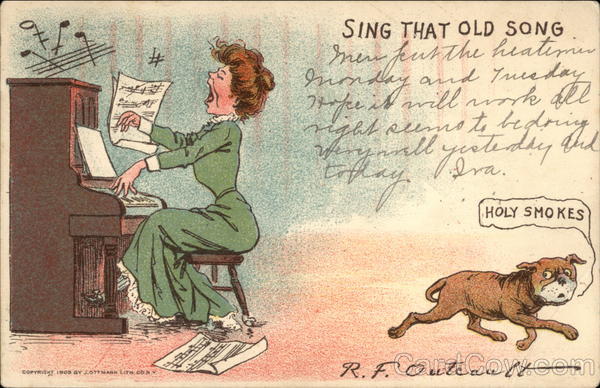 SING THAT OLD SONG
Men put the heater in
Monday and Tuesday
Hope it will work all
right seems to be doing
very well yesterday and
today. Ira.
HOLY SMOKES
R. F. Outcault
COPYRIGHT 1905 BY J. OTTMANN LITH. CO. N.Y.
CardCow.com